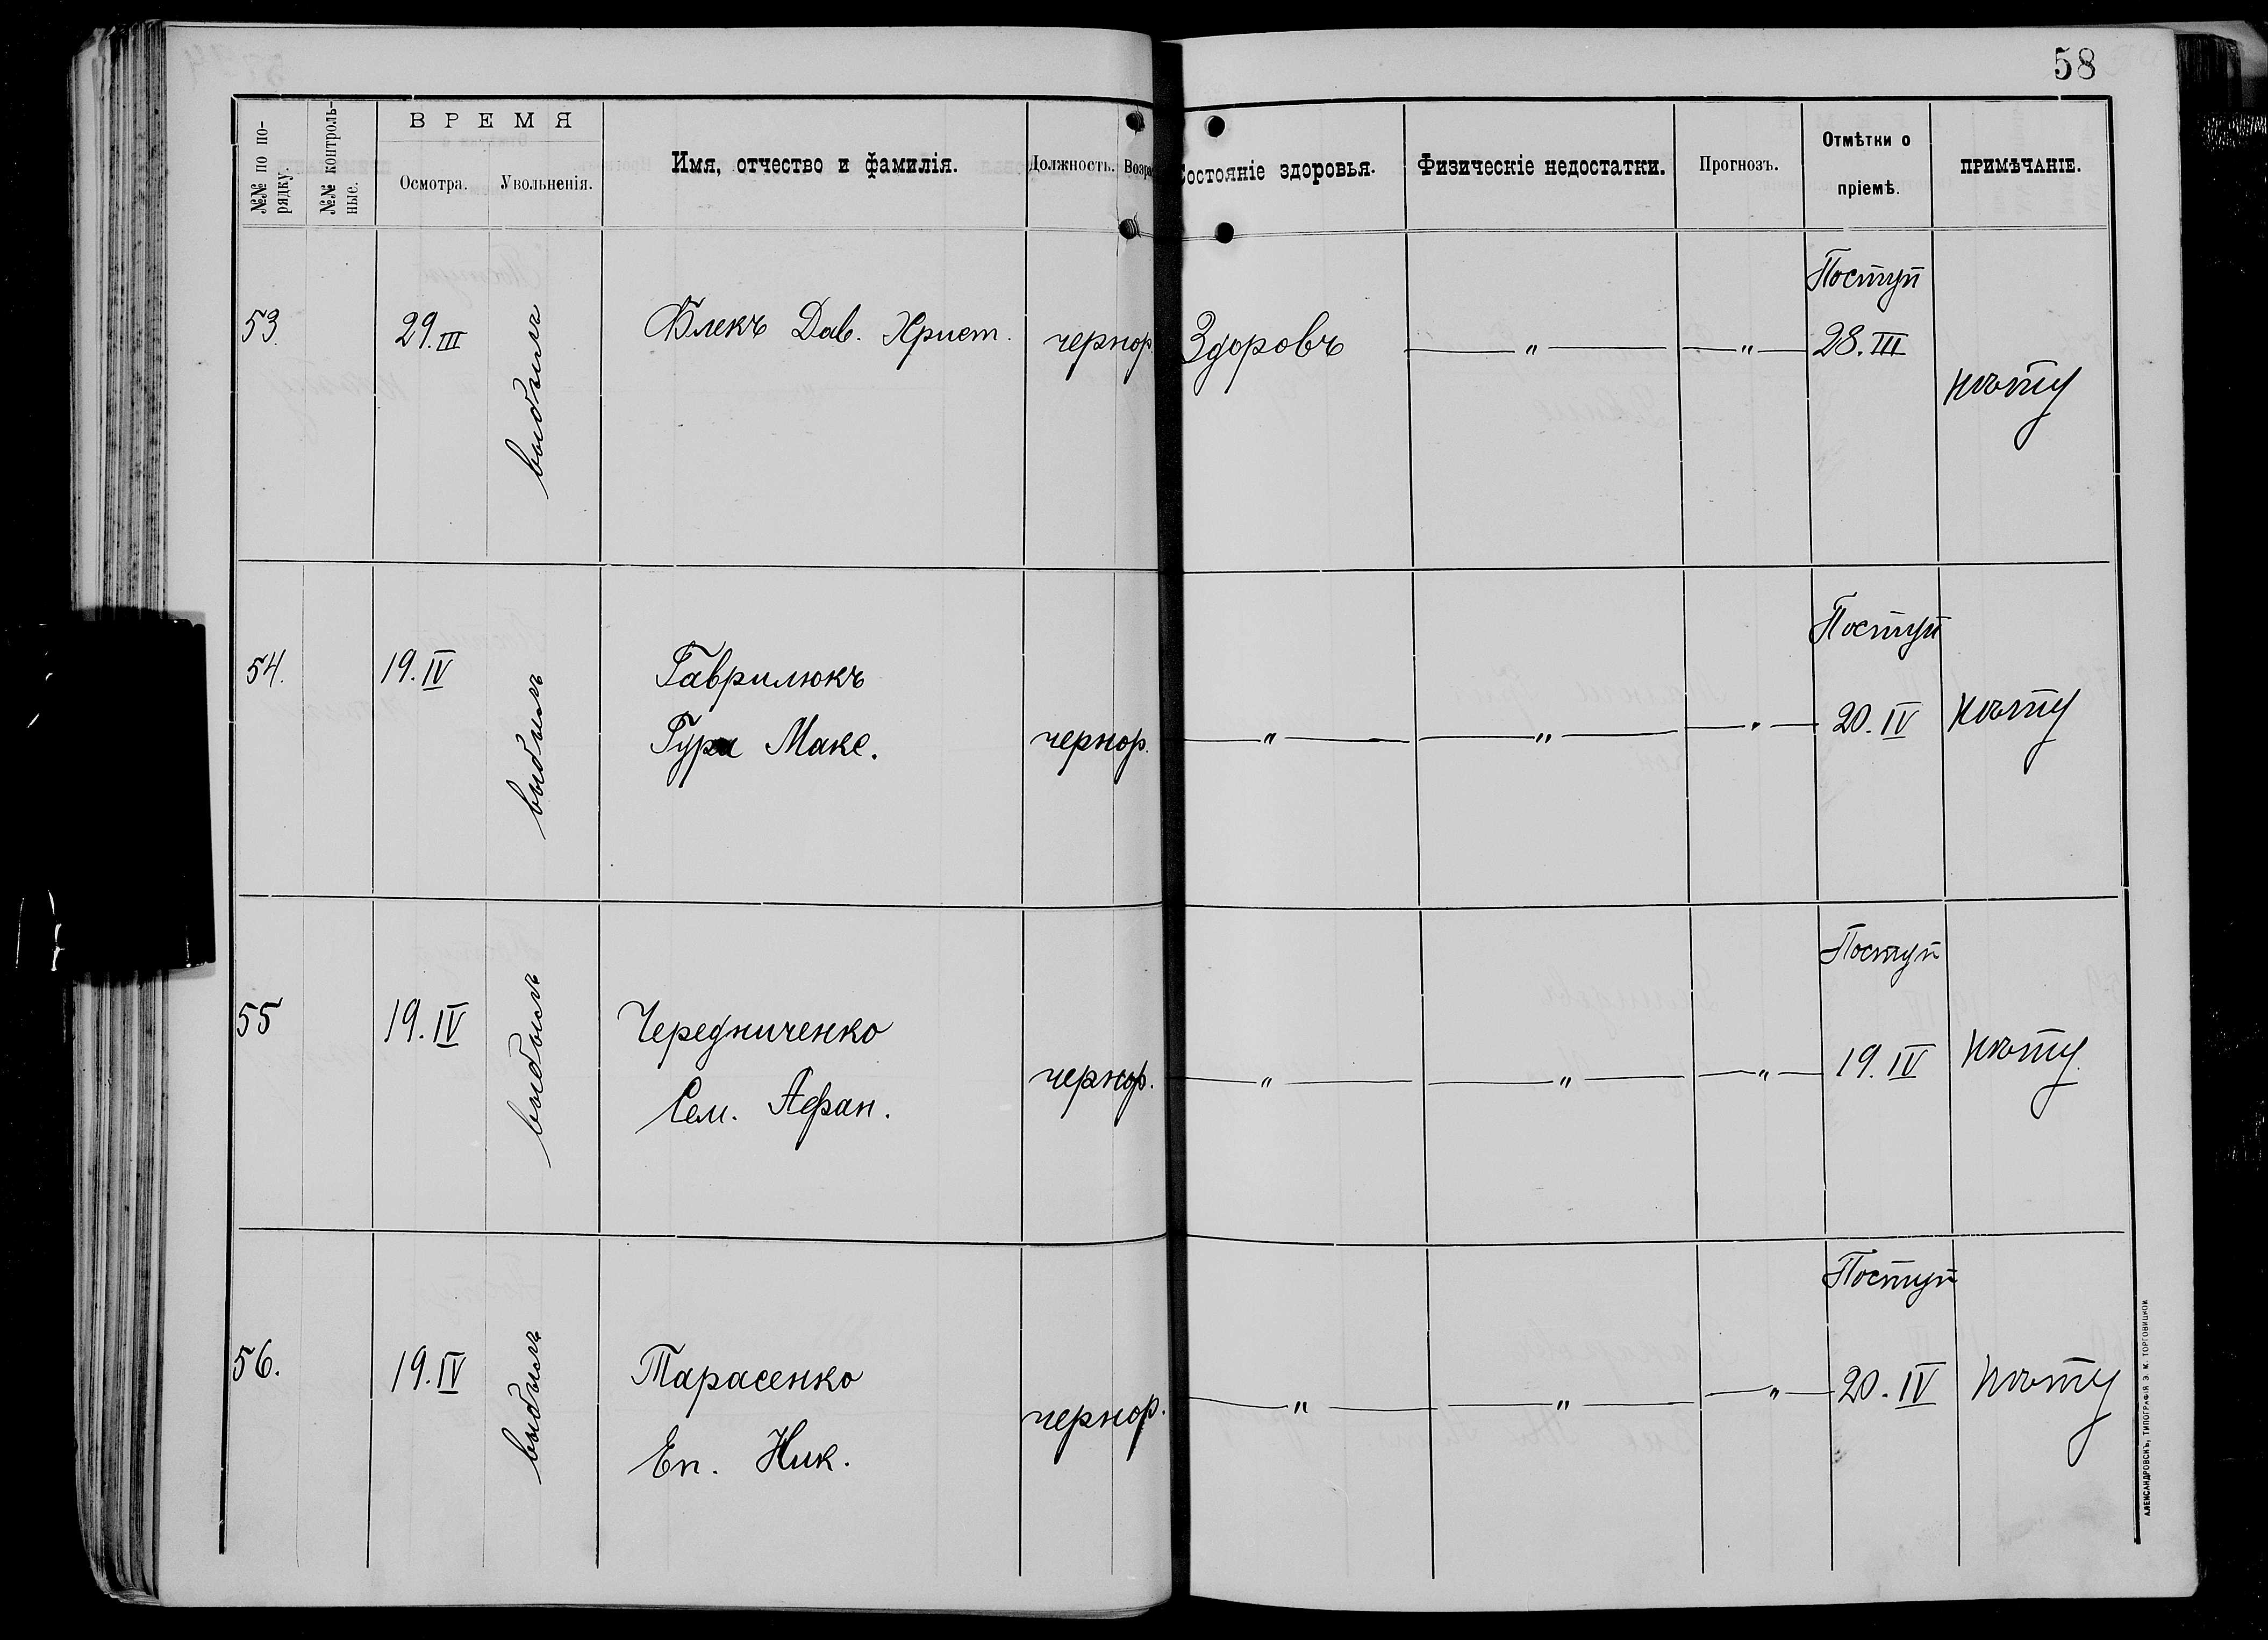 58
№№ по по-
рядку.
№№ контроль-
ные.
ВРЕМЯ
Осмотра.
Увольненія.
Имя, отчество и фамилія.
Должность.
Возра
Состояніе здоровья.
Физическіе недостатки.
Прогнозъ.
Отмѣтки о
пріемѣ.
ПРИМѢЧАНІЕ.
53 29.III выбылъ Блекъ Дав. Христ. чернор. Здоровъ — " — — " — Поступ
28.III
нѣту
54. 19.IV выбылъ Гаврилюкъ
Гура Макс. чернор. — " — — " — — " — Поступ
20.IV нѣту
55 19.IV выбылъ Чередниченко
Сем. Афан. чернор. — " — — " — — " — Поступ
19.IV нѣту.
56. 19.IV выбылъ Тарасенко
Еп. Ник. чернор. — " — — " — — " — Поступ
20.IV нѣту
АЛЕКСАНДРОВСКЪ, ТИПОГРАФІЯ Э. М. ТОРГОВИЦКОЙ